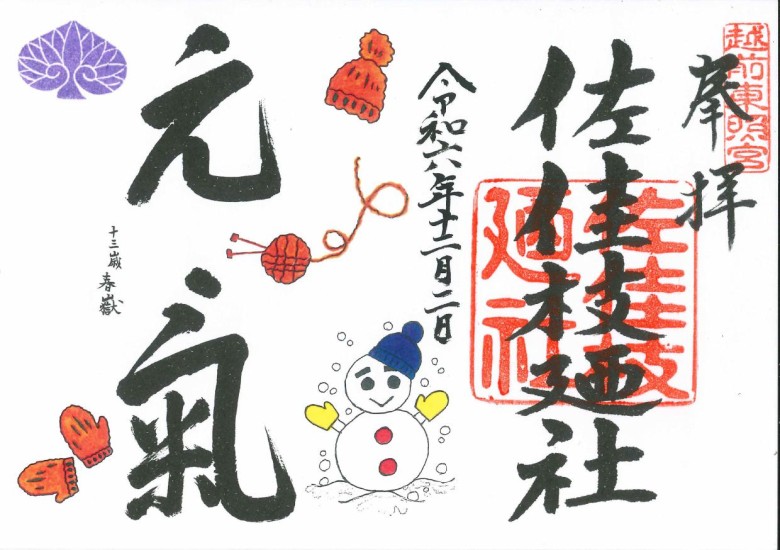 越前東照宮
奉拝
佐佳枝廼社
佐佳枝
廼社
令和六年十二月二日
元氣
十三嵗 春嶽